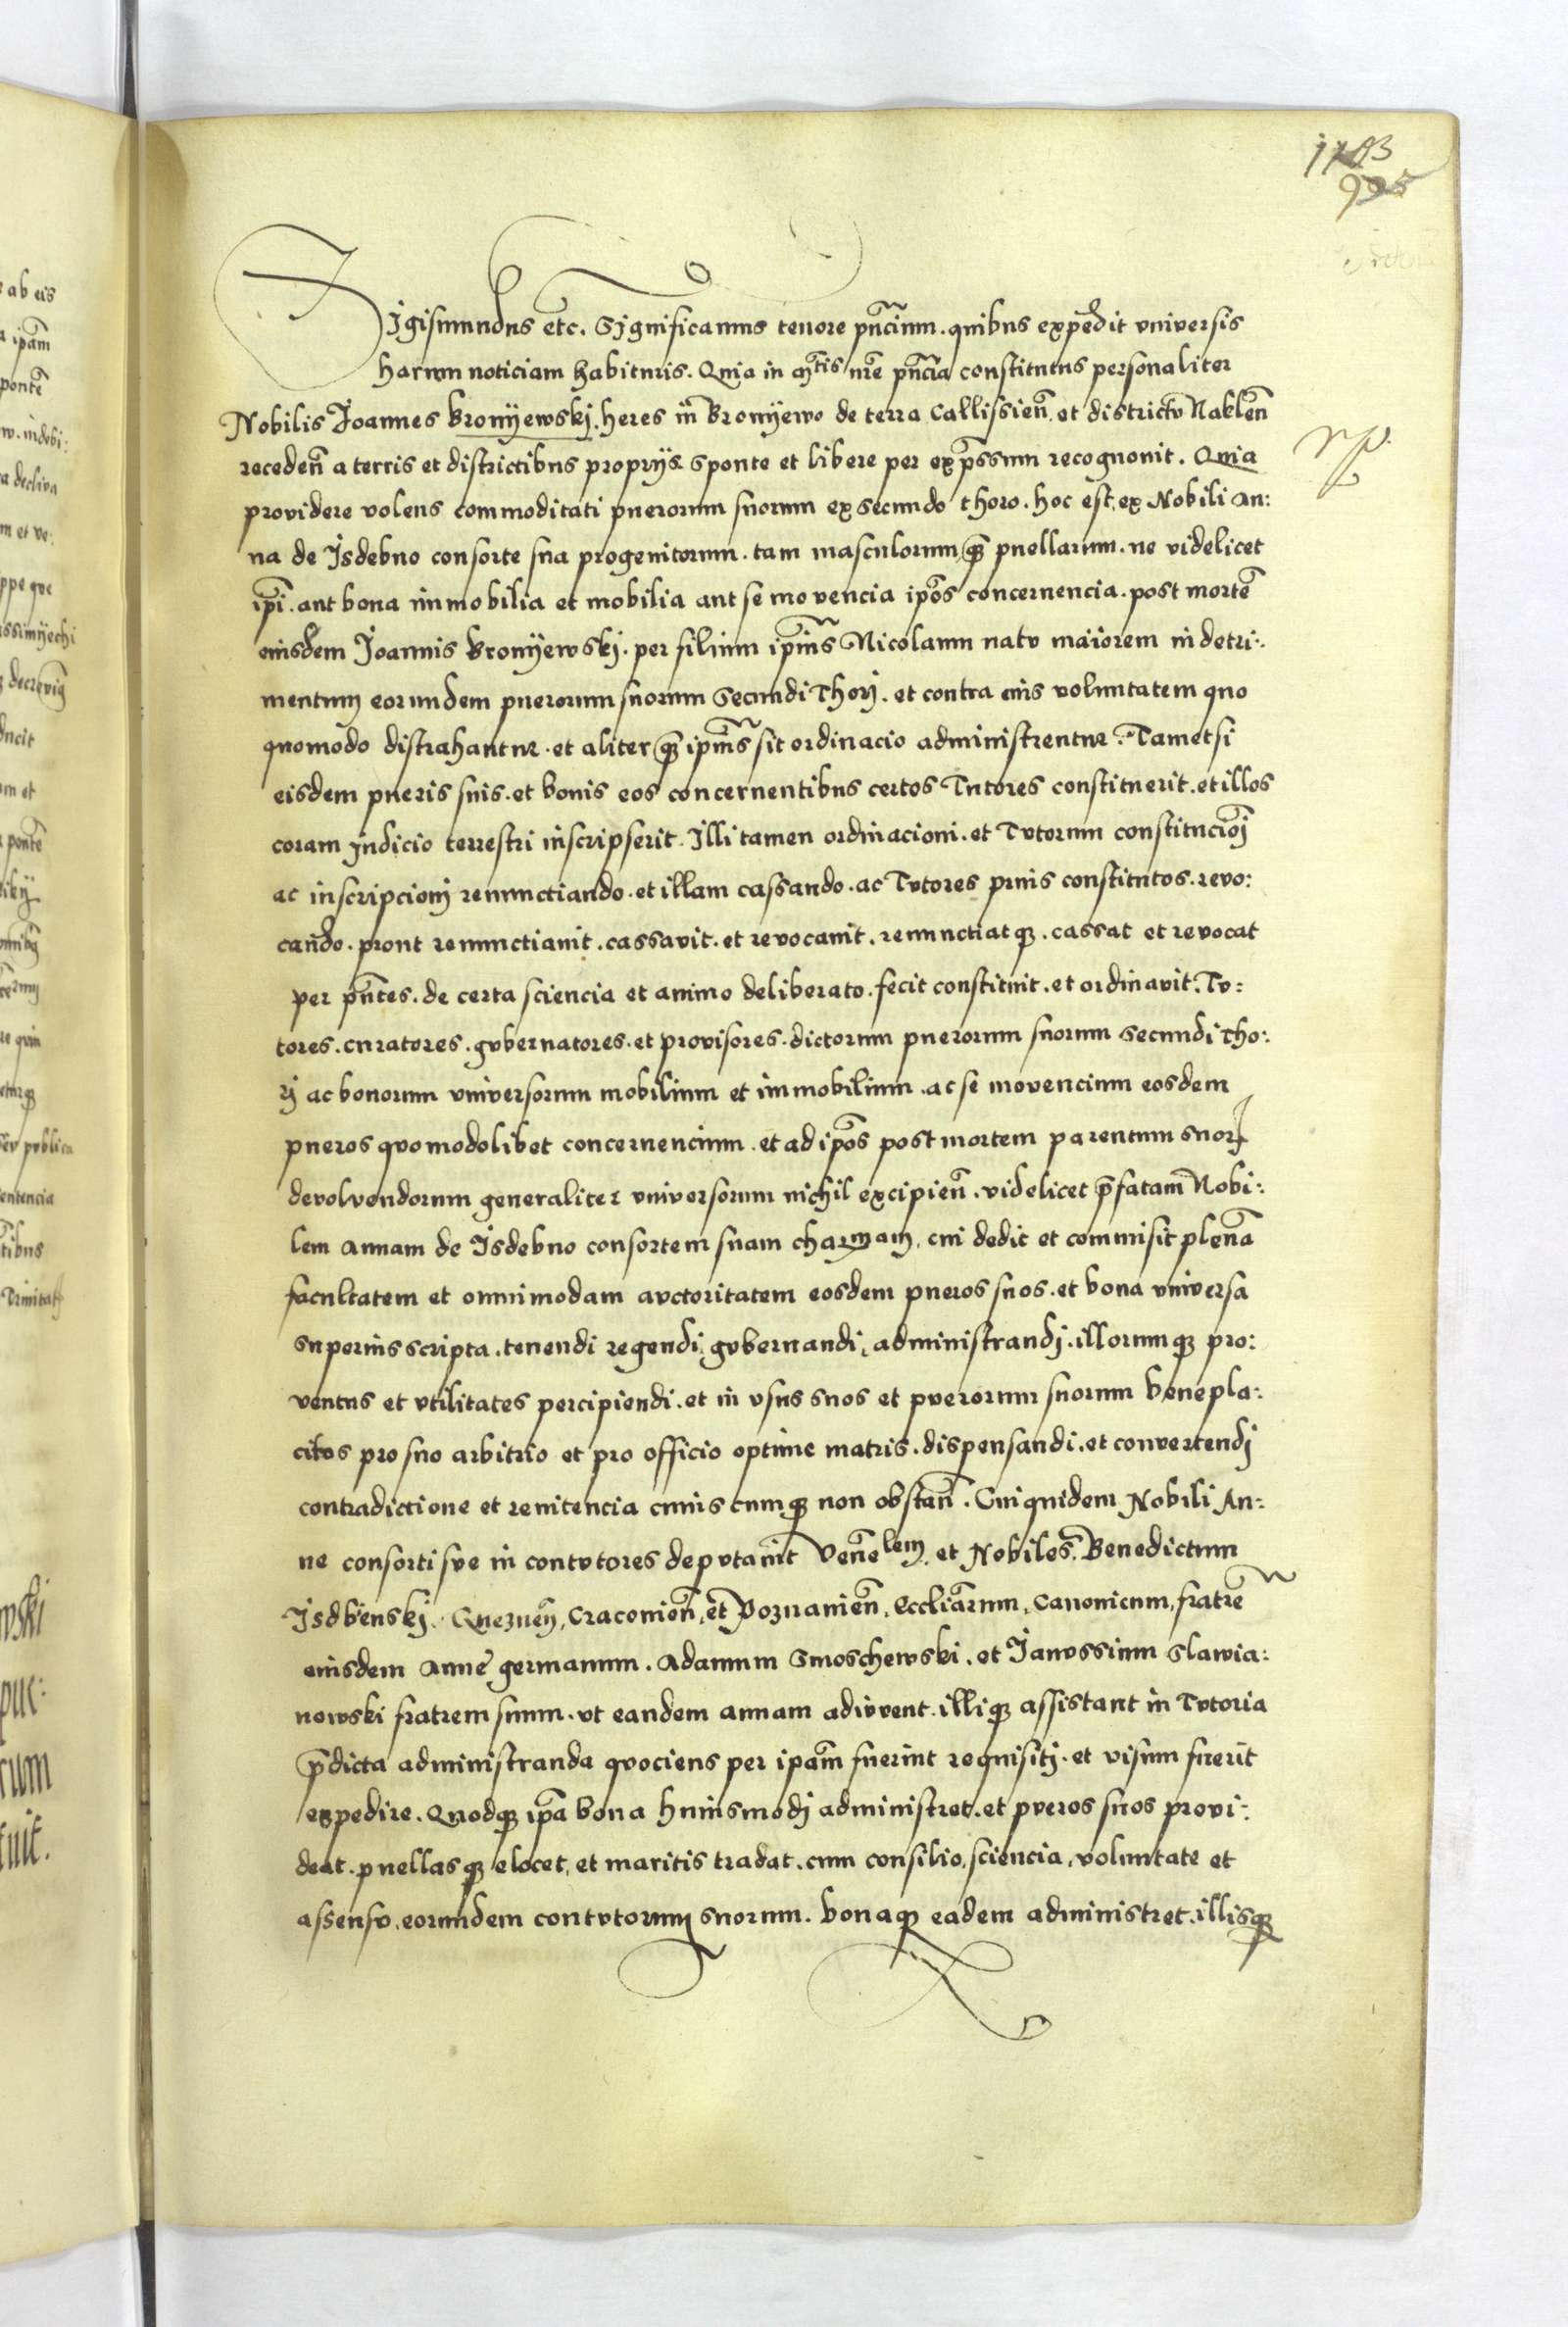 Sigismundus etc. Significamus tenore pn̄cium. quibus expedit vniversis
harum noticiam habituris. Quia in M̄tis nr̄e pn̄cia constitutus personaliter
Nobilis Joannes Bronyewskj. heres in Bronyewo de terra Callissien̄ et districtv Naklen̄
receden̄ a terris et districtibus proprys sponte et libere per exp̄ssum recognouit. Quia
providere volens commoditati puerorum suorum ex secundo thoro. hoc est, ex Nobili An:
na de Jsdebno consorte sua progenitorum. tam masculorum q̄ȝ puellarum. ne videlicet
ip̄i. aut bona immobilia et mobilia aut se movencia ip̄os concernencia. post mortē
eiusdem Joannis Bronyewskj. per filium ip̄ius Nicolaum natv maiorem in detri:
mentum eorundem puerorum suorum secundi Thorj. et contra eius voluntatem quo
quomodo distrahantur. et aliter q̄ȝ ip̄ius sit ordinacio administrentur. Tametsi
eisdem pueris suis. et bonis eos concernentibus certos Tutores constituerit. et illos
coram judicio terrestri inscripserit. Illi tamen ordinacioni. et Tvtorum constitucio͞j
ac inscripcionj renunctiando. et illam cassando. ac Tvtores prius constitutos. revo:
cando. prout renunctiauit. cassavit. et revocauit. renunctiatqȝ. cassat et revocat
per pn̄tes. de certa sciencia et animo deliberato. fecit constituit. et ordinavit. Tv:
tores. curatores. gvbernatores. et provisores. dictorum puerorum suorum secundi Tho:
rj ac bonorum vniversorum mobilium et immobilium. ac se movencium eosdem
pueros qvomodolibet concernencium. et ad ip̄os post mortem parentum suorꝝ
devolvendorum generaliter vniversorum nichil excipien̄. videlicet p̄fatam Nobi:
lem Annam de Jsdebno consortem suam charmam, cui dedit et commisit plenā
facultatem et omnimodam avctoritatem eosdem pueros suos. et bona vniversa
superius scripta. tenendi regendi, gvbernandi, administrandj. illorumqȝ pro:
ventus et vtilitates percipiendi. et in vsus suos et pverorum suorum benepla:
citos pro suo arbitrio et pro officio optime matris. dispensandi. et convertendj
contradictione et renitencia cuiuscumqȝ non obstan̄. Cuiquidem Nobili An:
ne consorti sve in contvtores depvtauit Venēlem. et Nobiles. Benedictum
Jsdbenskj. Gneznen̄, Cracouien̄, et Poznanien̄, Eccliārum, Canonicum, fratrē
eiusdem Anne germanum. Adamum Smoschewski. et Janvssium Slawia:
nowski fratrem suum. vt eandem Annam adivvent. illiqȝ assistant in Tvtoria
p̄dicta administranda qvociens per ip̄am fuerint requisitj. et visum fuerit
expedire. Quodqȝ ip̄a bona huiusmodj administret. et pveros suos provi:
deat. puellasqȝ elocet, et maritis tradat. cum consilio, sciencia, voluntate et
assensv, eorundem contvtorum suorum. bonaqȝ eadem administret. illisqȝ